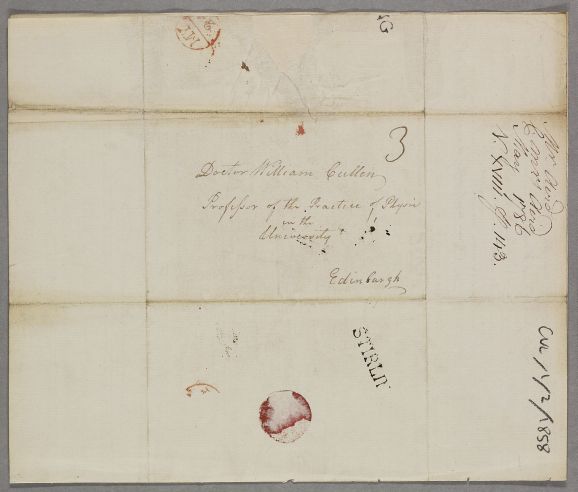 3
Doctor William Cullen
Professor of the Practice of Physic
in the
University
Edinburgh
STIRLIN
May 1786
N. XVIII. P. 113.
CUL/1/2/1858